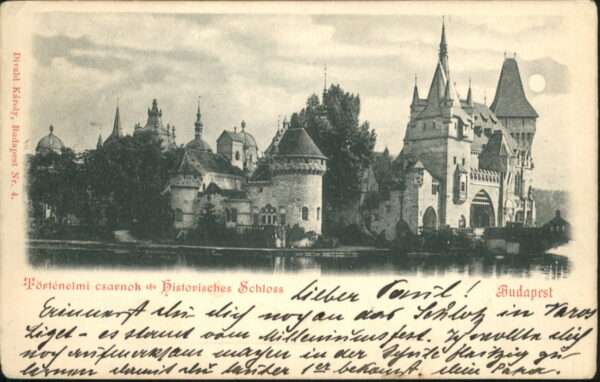 Divald Károly, Budapest Nr. 4.
Történelmi csarnok Historisches Schloss
Budapest
Lieber Paul!
Erinnerst du dich noch an das Schloß in Varos
Liget - es stamt vom Milleniumsfest. Ich wollte dich
noch aufmerksam machen in der Schule fleißig zu
lernen damit du lauter 1er bekomst dein Papa.